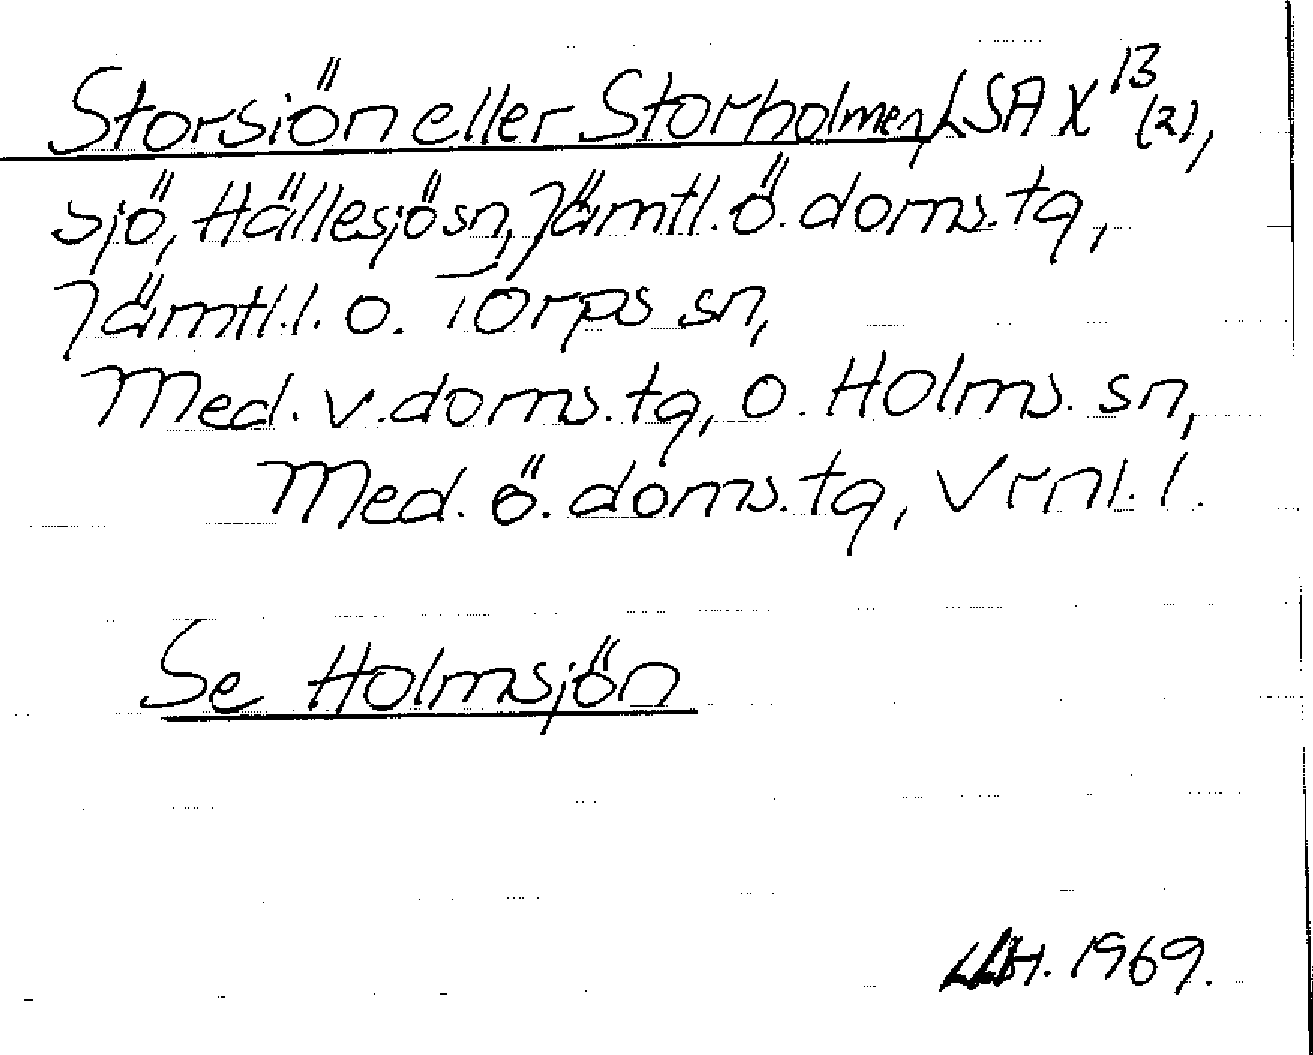 Storsiön eller Storholmen, LSA X 13 (2),
sjö, Hällesjö sn, Jämtl. ö. doms. tg,
Jämtl. l. o. Torps sn,
Med. v. doms. tg, o. Holms. sn,
Med. ö. doms. tg, Vrnl. l.
Se Holmsjön
1969.